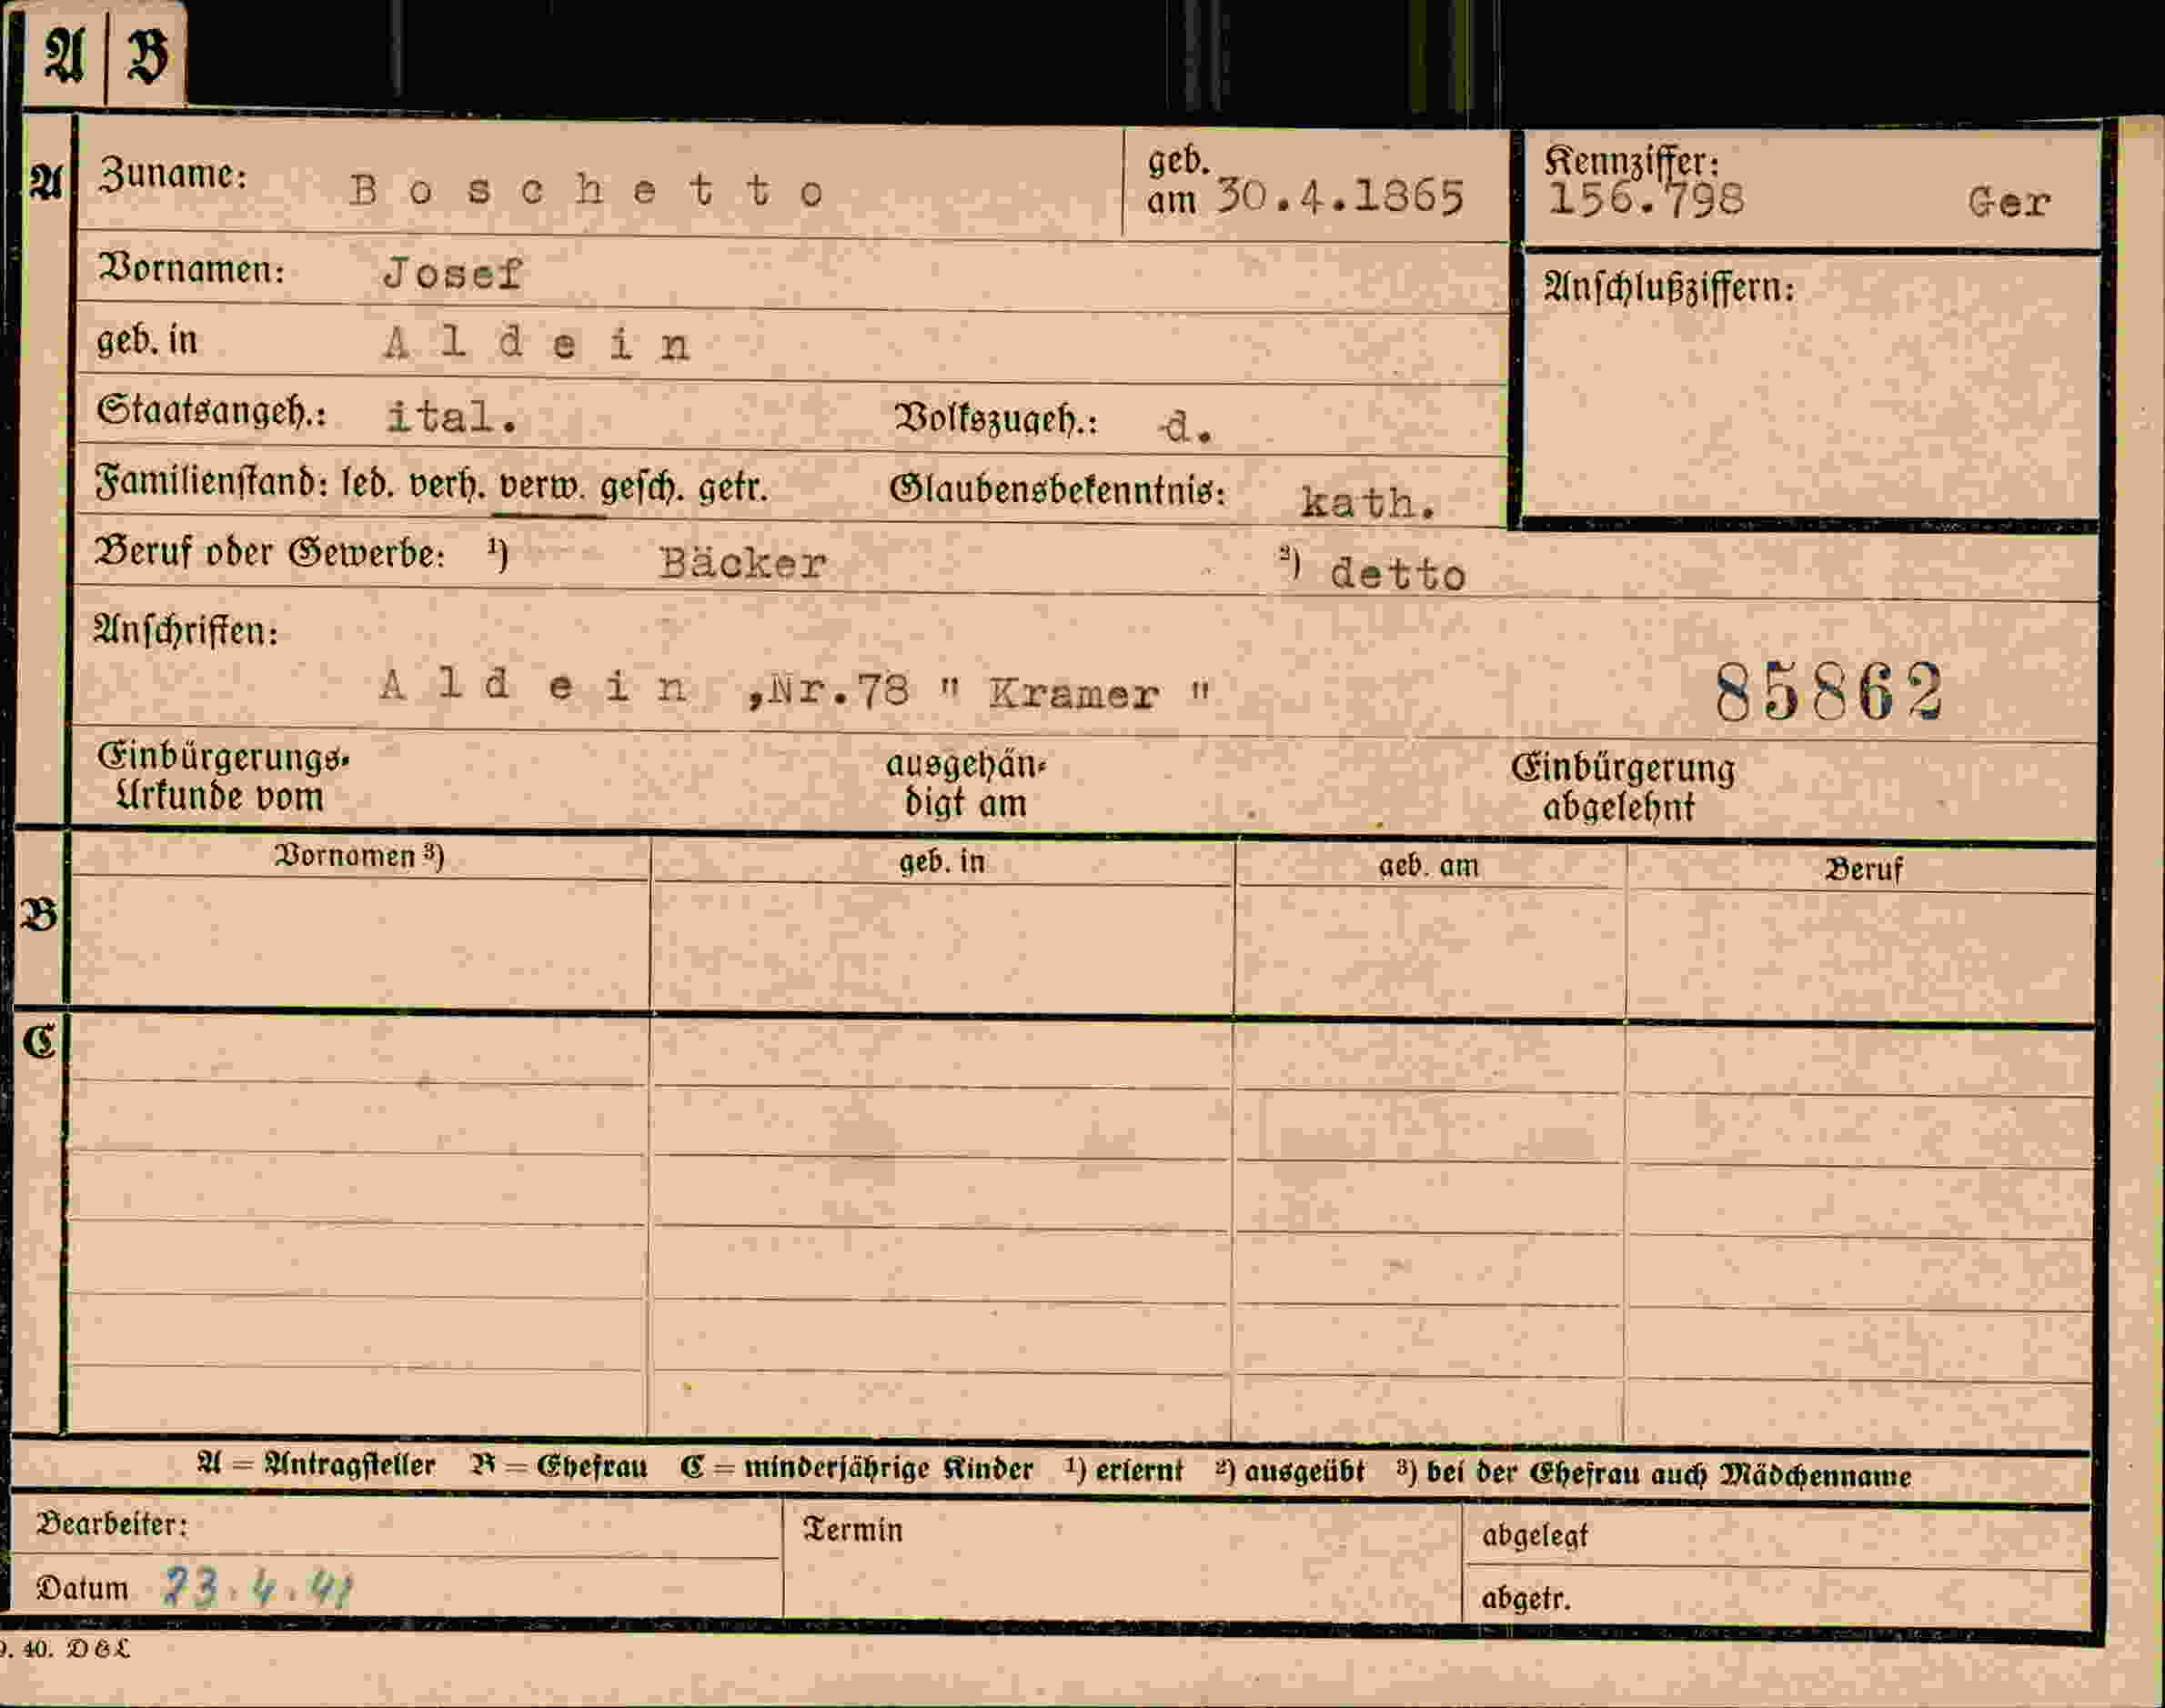 A B
A Zuname: Boschetto geb. am 30.4.1865 Kennziffer: 156.798 Ger
Vornamen: Josef Anschlußziffern:
geb. in Aldein
Staatsangeh.: ital. Volkszugeh.: d.
Familienstand: led. verh. verw. gesch. getr. Glaubensbekenntnis: kath.
Beruf oder Gewerbe: ¹) Bäcker ²) detto
Anschriften:
Aldein ,Nr.78 " Kramer " 85862
Einbürgerungs- ausgehän- Einbürgerung
Urkunde vom digt am abgelehnt
Vornamen ³) geb. in geb. am Beruf
B
C
A = Antragsteller B = Ehefrau C = minderjährige Kinder ¹) erlernt ²) ausgeübt ³) bei der Ehefrau auch Mädchenname
Bearbeiter: Termin abgelegt
Datum 23.4.41 abgetr.
9. 40. DGL